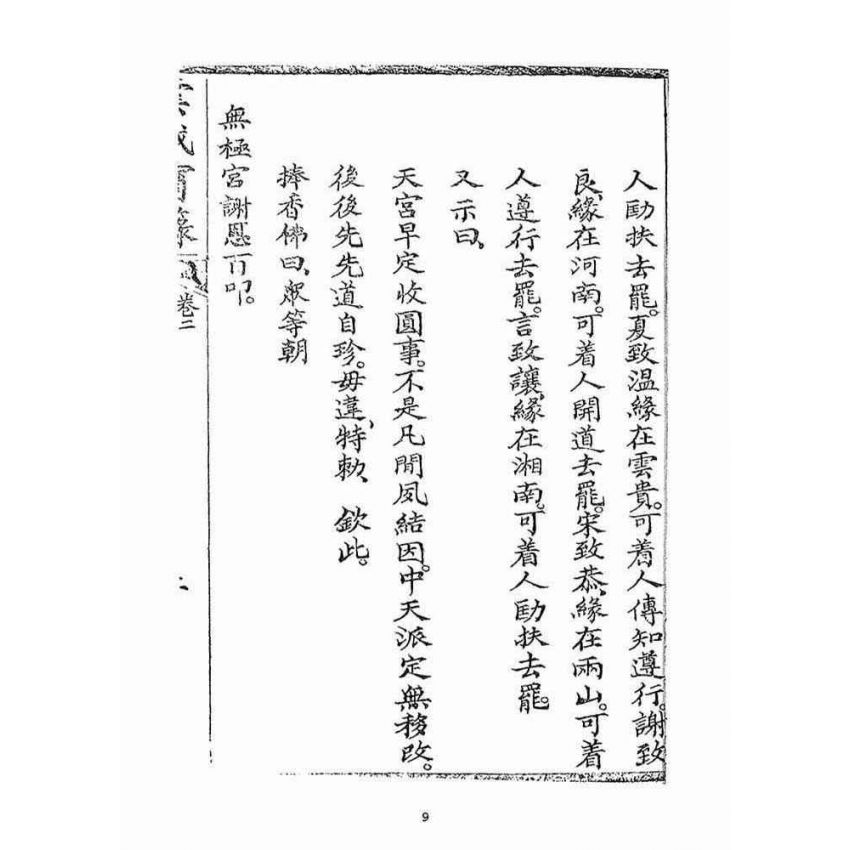 人助扶去罷。夏致温緣在雲貴。可着人傳知遵行。謝致
良、緣在河南。可着人開道去罷。宋致恭、緣在兩山。可着
人遵行去罷。言致讓、緣在湘南。可着人助扶去罷。
又示曰、
天宮早定收圓事。不是凡間夙結因。中天派定無移改。
後後先先道自珍。毋違、特敕、 欽此。
捧香佛曰、眾等朝
無極宮謝恩百叩。
卷三
9